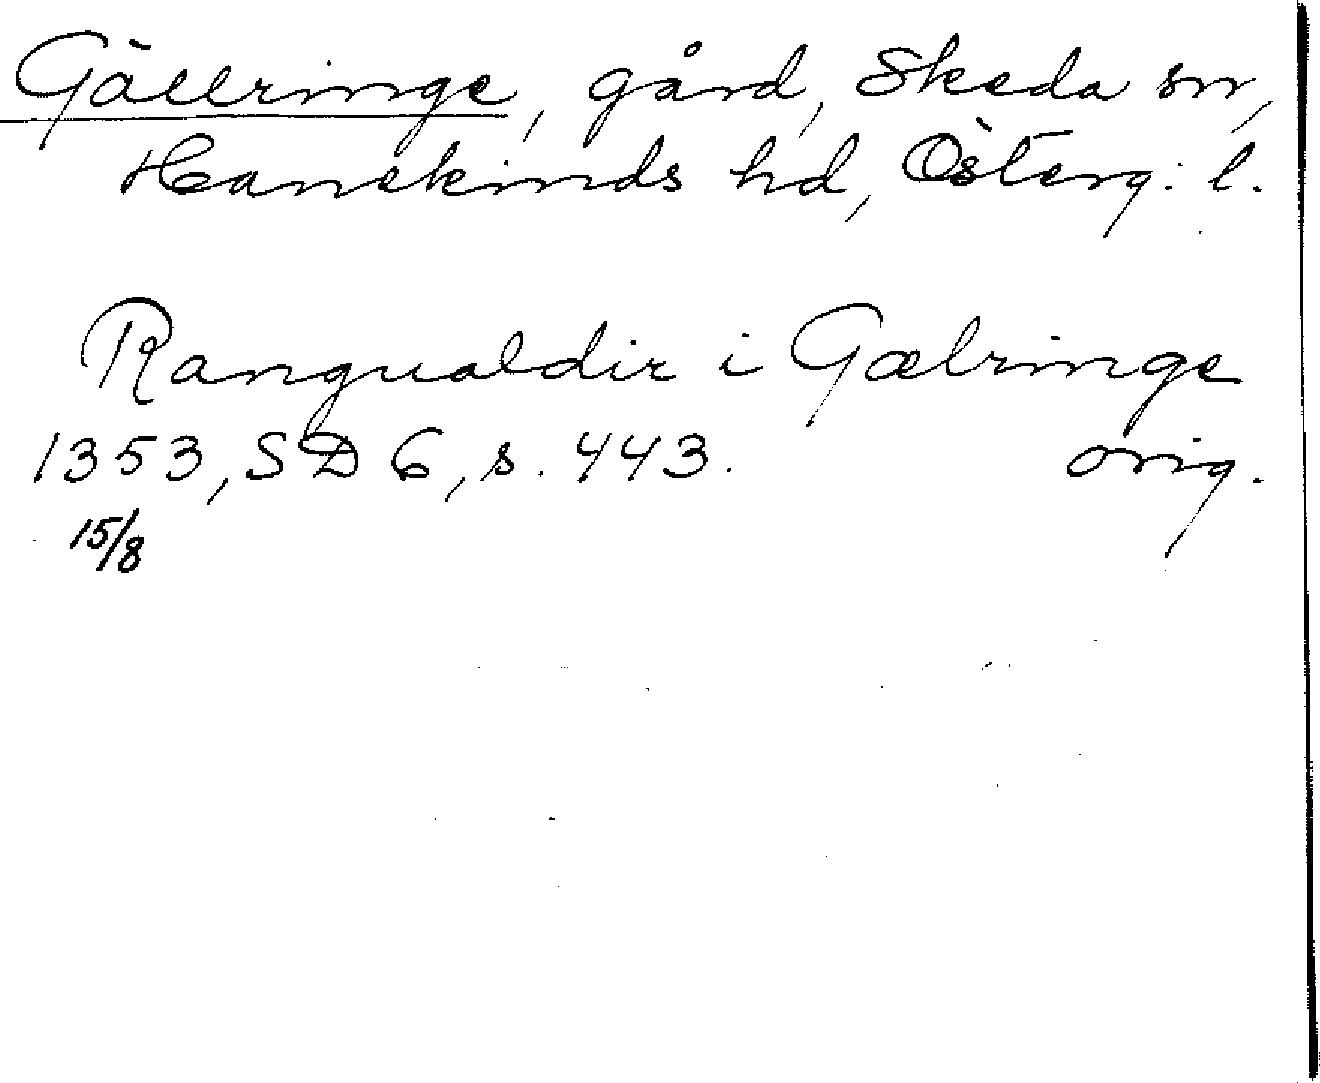 Gällringe, gård, Skeda sn,
Hanekinds hd, Österg. l.
Rangualdir i Gælringe
1353, SD 6, s. 443. orig.
15/8